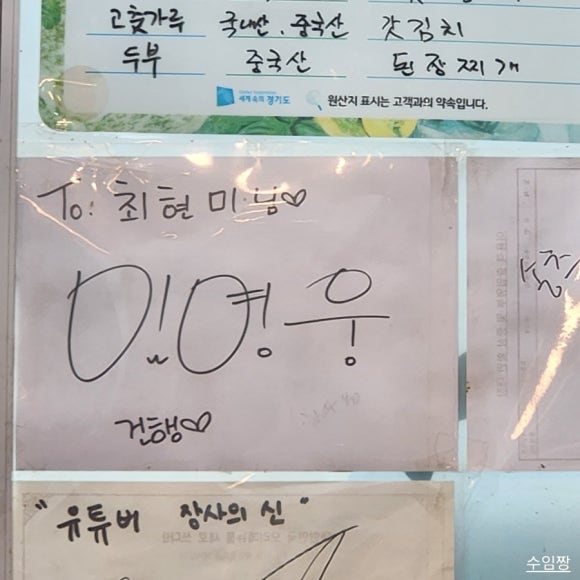 고춧가루 국내산, 중국산 갓김치
두부 중국산 된장찌개
세계 속의 경기도
원산지 표시는 고객과의 약속입니다.
To: 최현미님♡
임영웅
건행♡
"유튜버 장사의 신"
수임짱